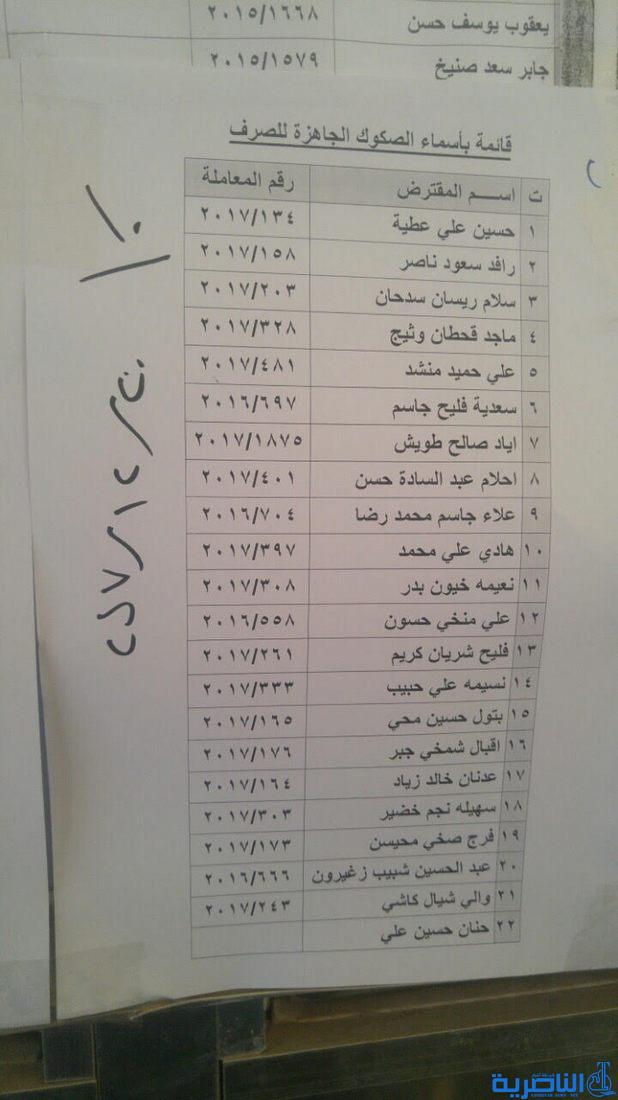 يعقوب يوسف حسن ٢٠١٥/١٦٦٨
جابر سعد صنيخ ٢٠١٥/١٥٧٩
قائمة بأسماء الصكوك الجاهزة للصرف
ت اســـم المقترض رقم المعاملة
١ حسين علي عطية ٢٠١٧/١٣٤
٢ رافد سعود ناصر ٢٠١٧/١٥٨
٣ سلام ريسان سدحان ٢٠١٧/٢٠٣
٤ ماجد قحطان وثيج ٢٠١٧/٣٢٨
٥ علي حميد منشد ٢٠١٧/٤٨١
٦ سعدية فليح جاسم ٢٠١٦/٦٩٧
٧ اياد صالح طويش ٢٠١٧/١٨٧٥
٨ احلام عبد السادة حسن ٢٠١٧/٤٠١
٩ علاء جاسم محمد رضا ٢٠١٦/٧٠٤
١٠ هادي علي محمد ٢٠١٧/٣٩٧
١١ نعيمه خيون بدر ٢٠١٧/٣٠٨
١٢ علي منخي حسون ٢٠١٦/٥٥٨
١٣ فليح شريان كريم ٢٠١٧/٢٦١
١٤ نسيمه علي حبيب ٢٠١٧/٣٣٣
١٥ بتول حسين محي ٢٠١٧/١٦٥
١٦ اقبال شمخي جبر ٢٠١٧/١٧٦
١٧ عدنان خالد زياد ٢٠١٧/١٦٤
١٨ سهيله نجم خضير ٢٠١٧/٣٠٣
١٩ فرج صخي محيسن ٢٠١٧/١٧٣
٢٠ عبد الحسين شبيب زغيرون ٢٠١٦/٦٦٦
٢١ والي شيال كاشي ٢٠١٧/٢٤٣
٢٢ حنان حسين علي
الناصرية